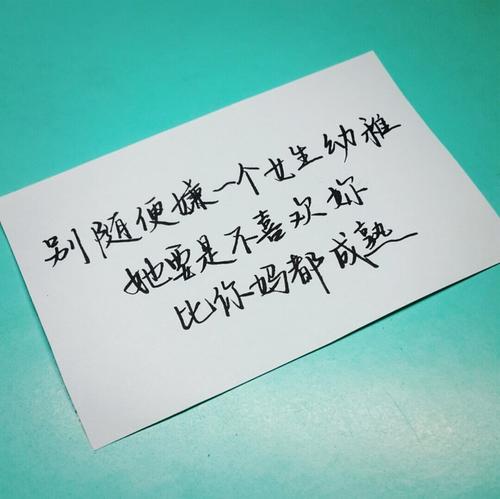 别随便嫌一个女生幼稚
她要是不喜欢妳
比你妈都成熟